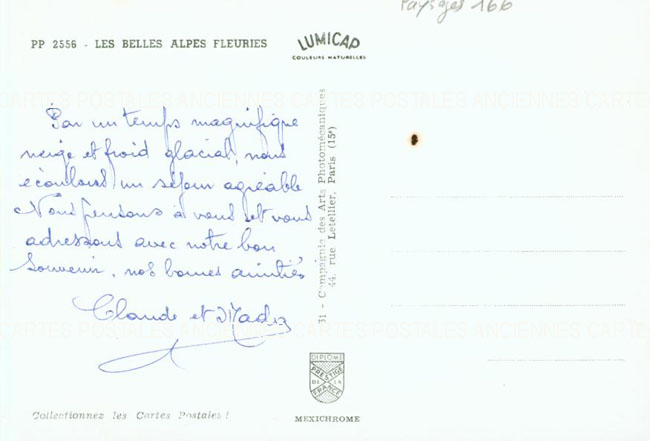 Paysages 166
PP 2556 - LES BELLES ALPES FLEURIES
LUMICAP
COULEURS NATURELLES
CARTES POSTALES ANCIENNES CARTES POSTALES ANCIENNES CARTES
Par un temps magnifique
neige et froid glacial, nous
écoulons un séjour agréable
Nous pensons à vous et vous
adressons avec notre bon
souvenir, nos bonnes amitiés
Claude et Mado
31 - Compagnie des Arts Photomécaniques
44, rue Letellier, Paris (15e)
DIPLOME
PRESTIGE
DE LA
FRANCE
MEXICHROME
Collectionnez les Cartes Postales !